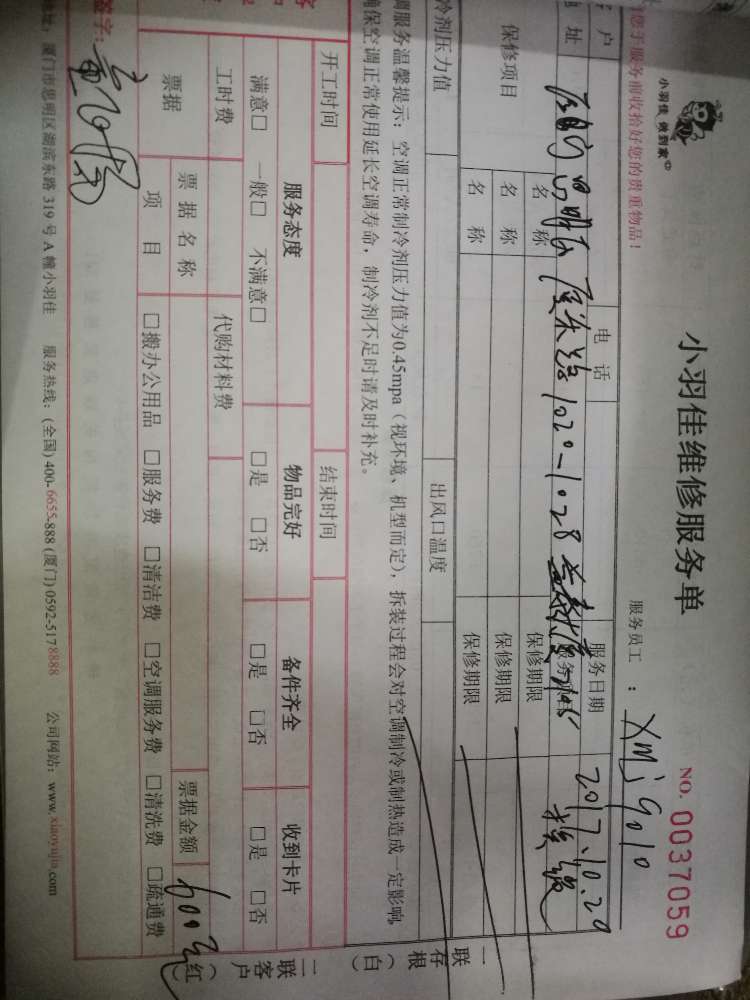 小羽佳维修服务单
小羽佳 做到家
NO. 0037059
服务员工： xmj9010
您于服务前收拾好您的贵重物品！
户
电 话
服务日期
2017.10.20
址
思明区
1020-1028
保修项目
名 称
保修期限
名 称
保修期限
名 称
保修期限
冷剂压力值
出风口温度
调服务温馨提示：空调正常制冷剂压力值为0.45mpa（视环境、机型而定），拆装过程会对空调制冷或制热造成一定影响，
确保空调正常使用延长空调寿命，制冷剂不足时请及时补充。
开工时间
结束时间
服务态度
物品完好
备件齐全
收到卡片
满意□ 一般□ 不满意□
□是 □否
□是 □否
□是 □否
工时费
代购材料费
票据
票 据 名 称
票据金额
600元
项 目
□搬办公用品 □服务费 □清洁费 □空调服务费 □清洗费 □疏通费
签字：
地址：厦门市思明区湖滨东路 319 号 A 幢小羽佳 服务热线：(全国) 400-6655-888 (厦门) 0592-5178888 公司网站：www.xiaoyujia.com
一联存根（白）
二联客户（红）